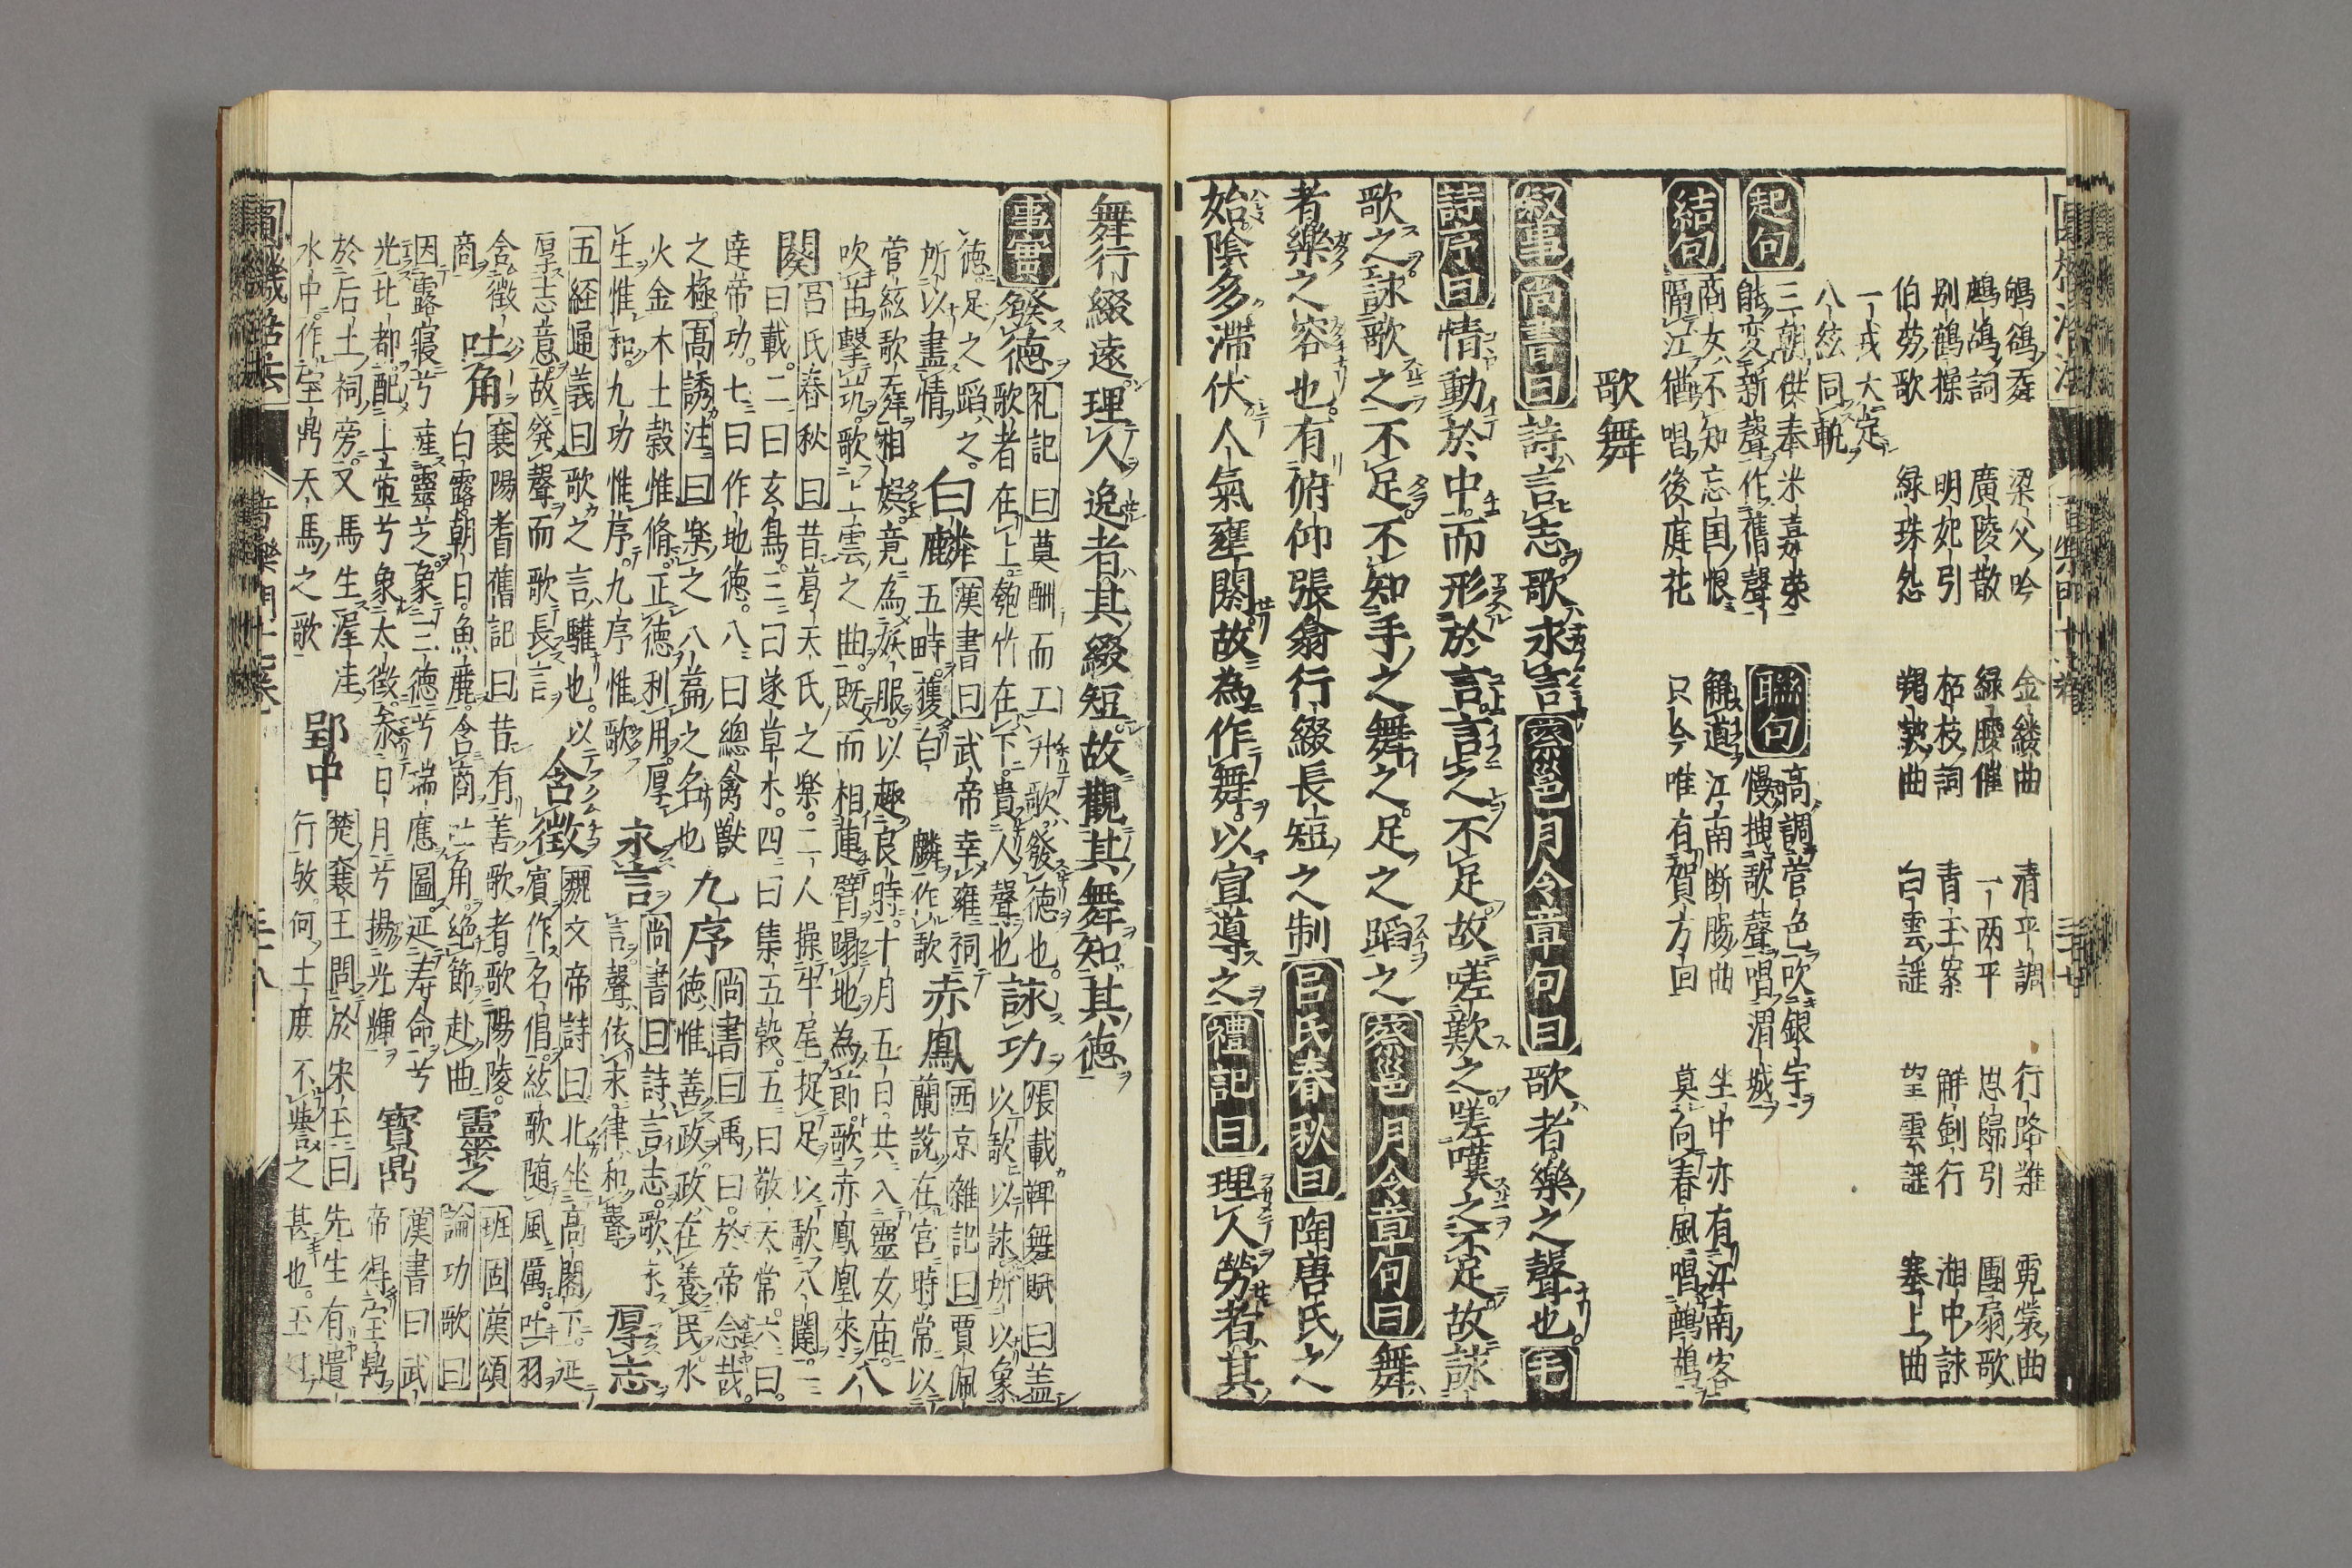 鴝鵒舞　梁父吟　金縷曲　清平調　行路難　霓裳曲
鷓鴣詞　廣陵散　綠腰催　一兩平　思歸引　團扇歌
別鶴操　明妃引　柘枝詞　青玉案　解劍行　湘中詠
伯勞歌　綠珠怨　羯鼓曲　白雲謠　望雲謡　塞上曲
一戎大定
八絃同軌
起句　三朝供奉米嘉榮　聯句　高調菅色吹銀字
能変新聲作舊聲　慢拽歌聲唱渭城
結句　商女不知忘国恨　解道江南断腸曲　坐中亦有江南客
隔江猶唱後庭花　只今唯有賀方回　莫向春風唱鷓鴣
歌舞
叙事　尚書曰　詩言志歌永言　蔡邕月令章句曰　歌者樂之聲也。毛
詩序曰　情動於中。而形於言。言之不足。故嗟歎之。嗟嘆之不足。故詠
歌之。詠歌之不足。不知手之舞之。足之蹈之　蔡邕月令章句曰　舞
者樂之容也。有俯仰張翕行綴長短之制　呂氏春秋曰　陶唐氏之
始。陰多滯伏。人氣壅閼。故為作舞。以宣導之　禮記曰　理人勞者。其
舞行綴遠。理人逸者。其綴短。故觀其舞知其德
事實　發德　礼記曰　莫酬而工升歌。發德也。詠功　張載鞞舞賦曰　蓋
歌者在上。匏竹在下。貴人聲也　以歌以詠。所以象
德。足之蹈之。　白麟　漢書曰　武帝幸雍祠　赤鳳　西京雜記曰　賈佩
所以盡情　五畤。獲白麟作歌　蘭說在宮時常以
菅絃歌舞相娯。竟為妖服。以趣良時。十月五日共入靈女庙。
吹笛擊筑。歌上雲之曲。既而相連臂蹋地為節。歌赤鳳凰來　八
闋　呂氏春秋曰　昔葛天氏之樂。二人操牛尾捉足以歌八闋。一
曰載。二曰玄鳥。三曰遂草木。四曰集五穀。五曰敬天常。六曰
逹帝功。七曰作地德。八曰總禽獸　九序　尚書曰　禹曰。於帝念哉。
之極　高誘注曰　楽之八篇之名也　德惟善政。政在養民。水
火金木土穀惟脩。正德利用。厚　永言　尚書曰　詩言志。歌永
生惟和。九功惟序。九序惟歌　言。聲依永。律和聲　厚志
五経通義曰　歌之言驩也。以　含徵　魏文帝詩曰　北坐高閣下。延
厚志意。故発聲而歌長言　賓作名倡。絃歌随風厲。吐羽
含徵　吐角　襄陽耆舊記曰　昔有善歌者。歌陽陵。　班固漢頌
商　白露朝日。魚鹿。含商吐角。絶節赴曲　靈芝　論功歌曰
因露寢兮産靈芝。象三德兮瑞應圖。延壽命兮　漢書曰　武
光北都。配上帝兮象太微。叅日月兮揚光輝　寶鼎　帝得宝鼎
於后土祠旁。又馬生渥洼　楚襄王問於宋玉曰　先生有遺
水中。作宝鼎天馬之歌　郢中　行㰤何士庻不譽之甚也。玉対